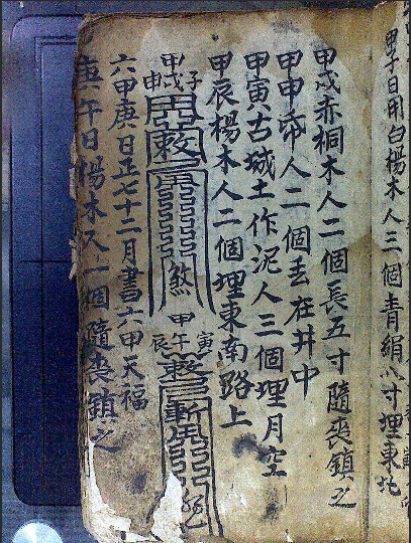 甲子日用白楊木人三個青絹八寸埋東北
甲戌赤桐木人二個長五寸隨喪鎮之
甲申帋人二個丢在井中
甲寅古城土作泥人三個埋月空
甲辰楊木人二個埋東南路上
甲子
戌
申
煞
甲寅
午
辰
六甲庚日正七十二月書六甲天福
庚午日楊木人一個隨喪鎮之